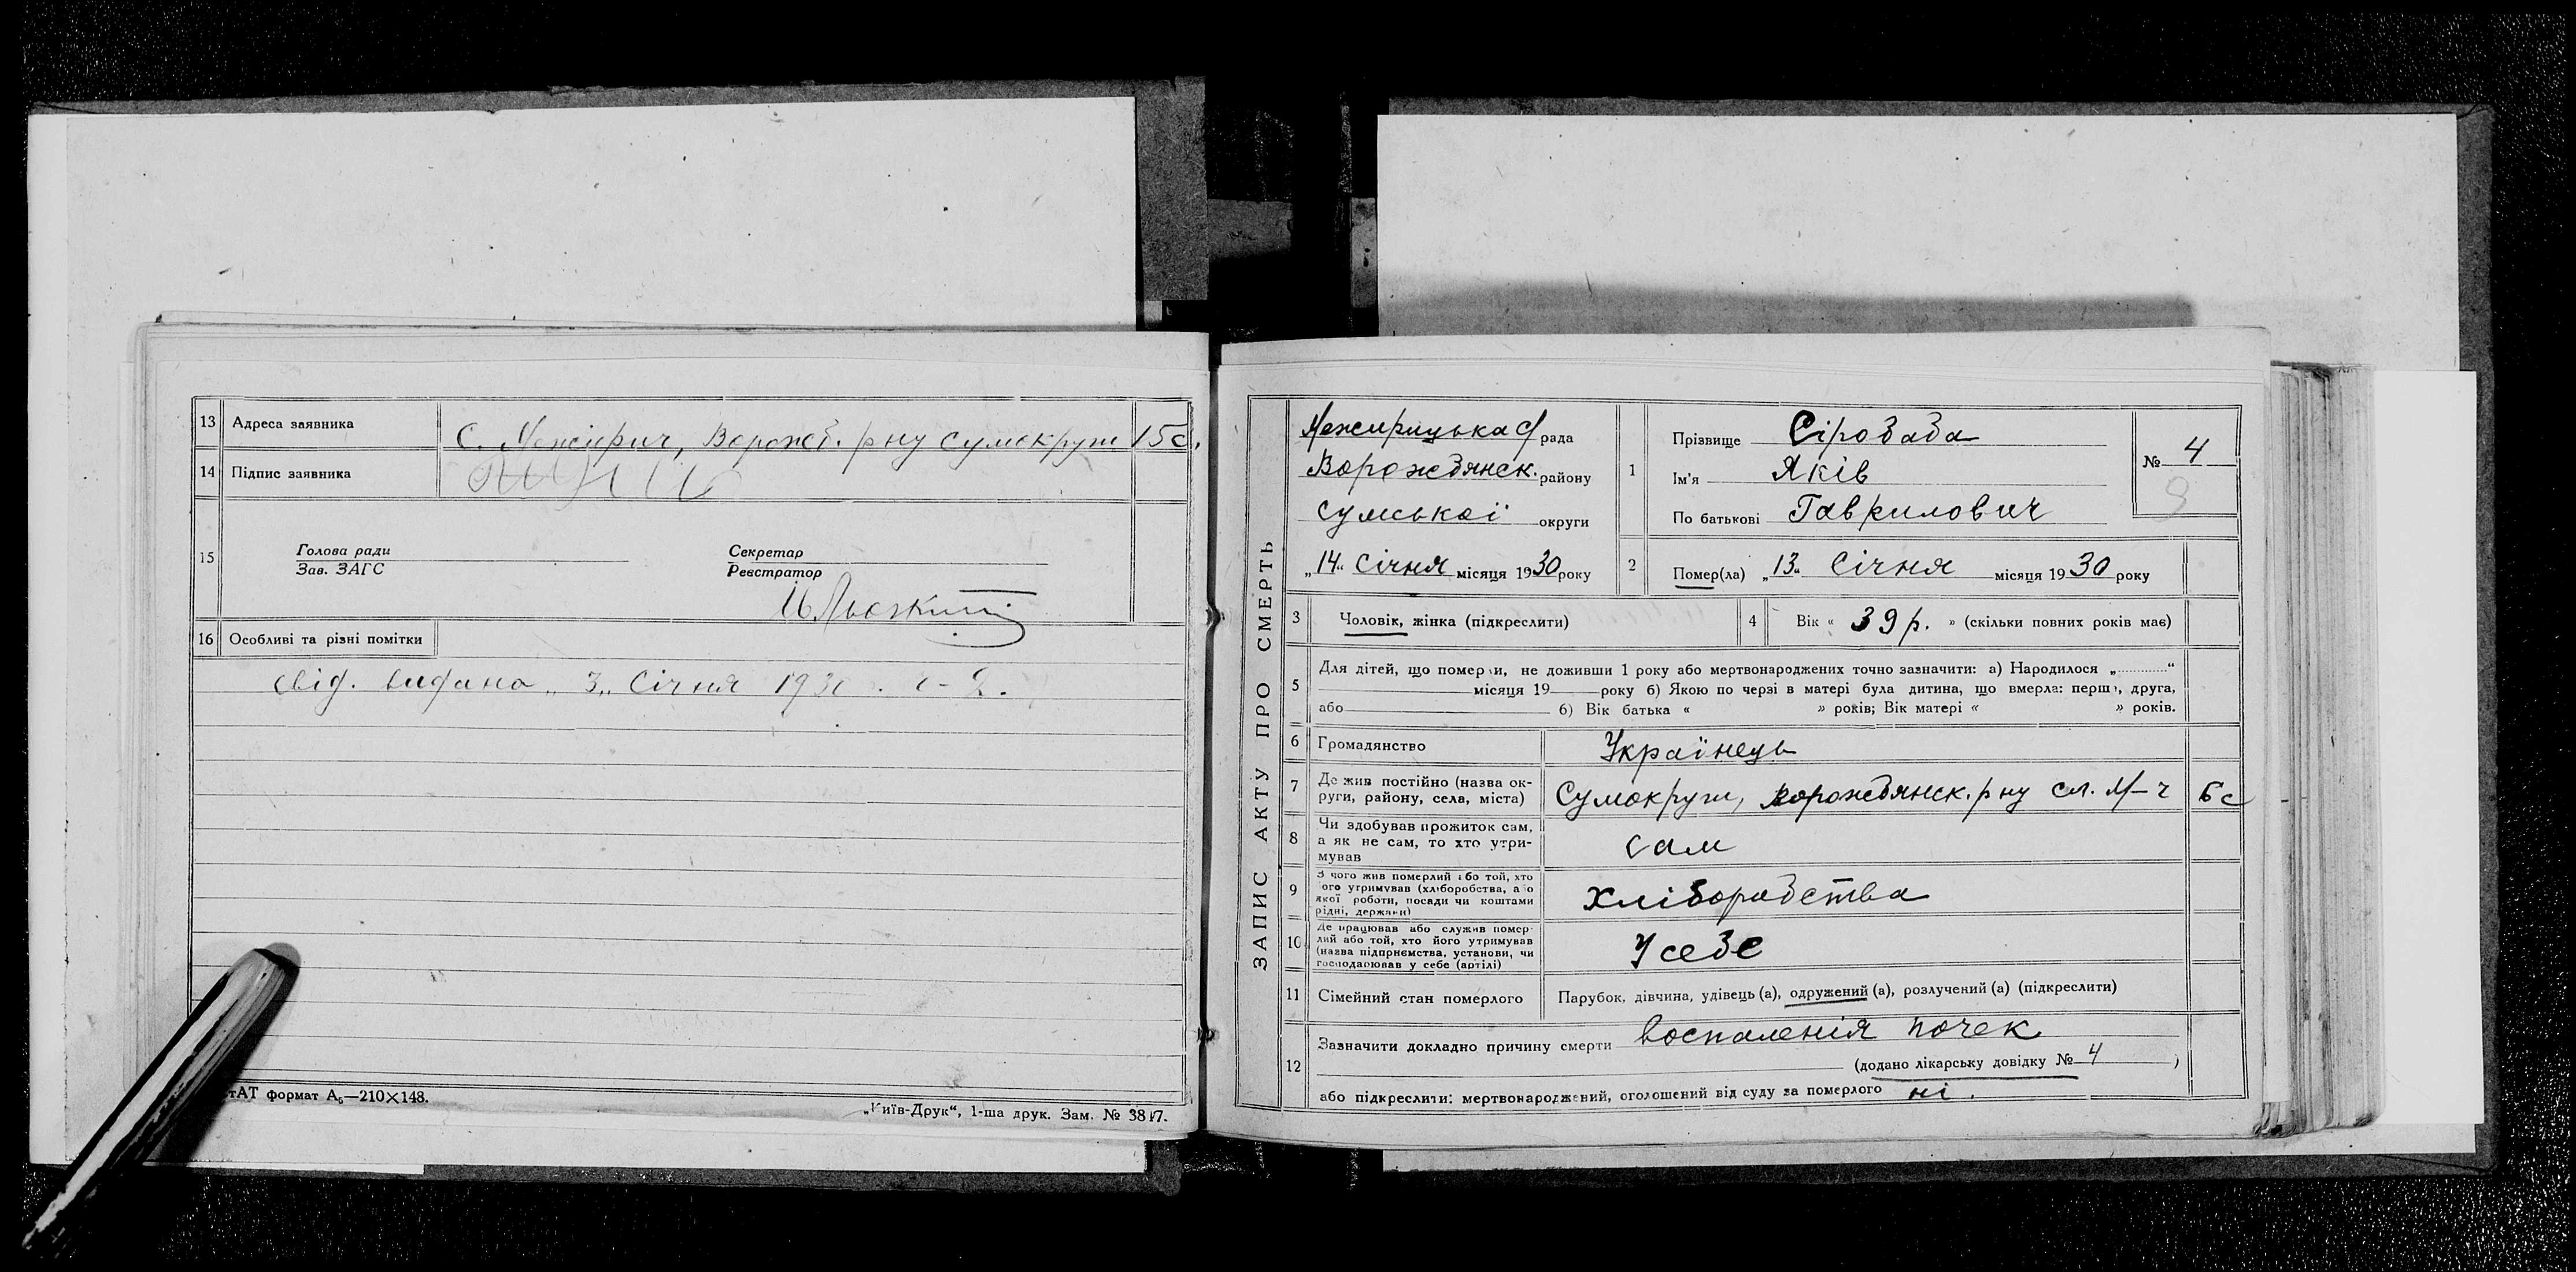 13 Адреса заявника С. Межирич, Ворожб. р ну Сумокруги 15с.
14 Підпис заявника
15 Голова ради
Зав. ЗАГС
Секретар
Реєстратор
16 Особливі та різні помітки
свід. видано „3„ Січня 1930
тАТ формат А₅—210×148.
„Київ-Друк“, 1-ша друк. Зам. № 3817.
ЗАПИС АКТУ ПРО СМЕРТЬ
Межирицька с/рада
Ворождянск. району
Сумської округи
„14„ Січня місяця 1930 року
1 Прізвище Сіробаба
Ім'я Яків
По батькові Гаврилович
№ 4
9
2 Помер(ла) „13„ Січня місяця 1930 року
3 Чоловік, жінка (підкреслити)
4 Вік « 39 р. » (скільки повних років має)
5 Для дітей, що померли, не доживши 1 року або мертвонароджених точно зазначити: а) Народилося „............“
місяця 19 року б) Якою по черзі в матері була дитина, що вмерла: перша, друга,
або б) Вік батька « » років; Вік матері « » років.
6 Громадянство Українець
7 Де жив постійно (назва ок-
руги, району, села, міста) Сумокруги, Ворождянск. р ну сл. М-ч 6с
8 Чи здобував прожиток сам,
а як не сам, то хто утри-
мував сам
9 З чого жив померлий або той, хто
його утримував (хліборобства, або
якої роботи, посади чи коштами
рідні, держави) Хліборобства
10 Де працював або служив помер-
лий або той, хто його утримував
(назва підприємства, установи, чи
господарював у себе (артілі) У себе
11 Сімейний стан померлого Парубок, дівчина, удівець (а), одружений (а), розлучений (а) (підкреслити)
12 Зазначити докладно причину смерти воспаленія почек
(додано лікарську довідку № 4 )
або підкреслити: мертвонароджений, оголошений від суду за померлого ні.